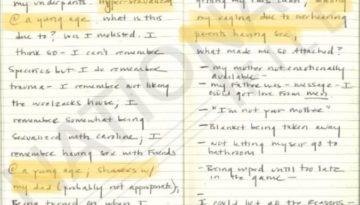 my underpants. Hyper-sexualized
@ a young age. What is this
due to? Was I molested. I
think so - I can't remember
specifics but I do remember
trauma - I remember not liking
the woolzacks house; I
remember somewhat being
sexualized with Caroline; I
remember having sex with friends
@ a young age; showers w/
my dad (probably not appropriate).
Being turned on when I
due to overhearing
parents having sex;
what made me so attached?
- my mother not emotionally
available -
- my father was - message - I
would get love from men
- "I'm not your mother"
- Blanket being taken away
- not letting myself go to
bathroom -
- Being wiped until too late
in the game -
I could let all the reasons
NATIONAL